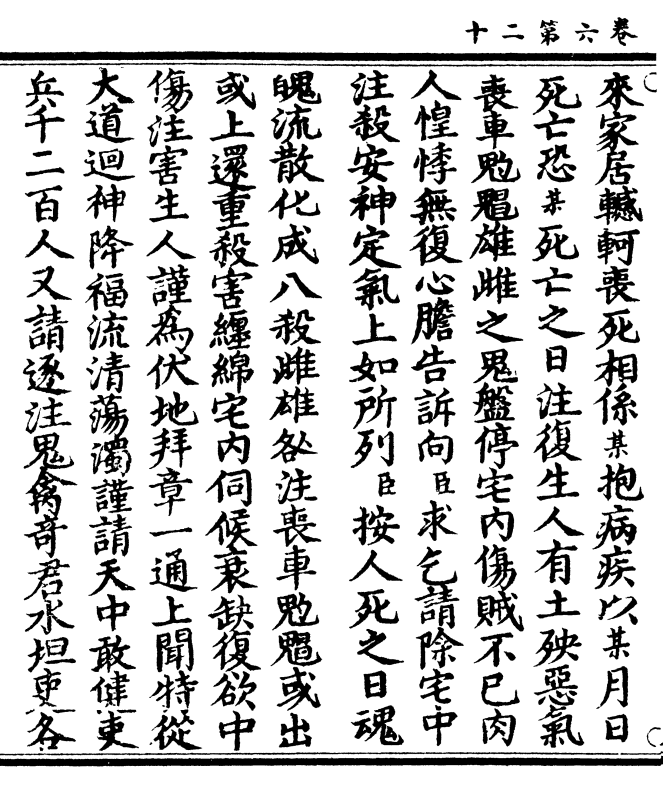 卷六第二十
來家居轗軻喪死相係某抱病疾以某月日
死亡恐某死亡之日注復生人有土殃惡氣
喪車魁䰡雄雌之鬼盤停宅内傷賊不已肉
人惶悸無復心膽告訴向臣求乞請除宅中
注殺安神定氣上如所列臣按人死之日魂
魄流散化成八殺雌雄各注喪車魁䰡或出
或上還重殺害纏綿宅内伺候衰缺復欲中
傷注害生人謹為伏地拜章一通上聞特從
大道迴神降福流清蕩濁謹請天中敢健吏
兵千二百人又請逐注鬼禽奇君水坦吏各